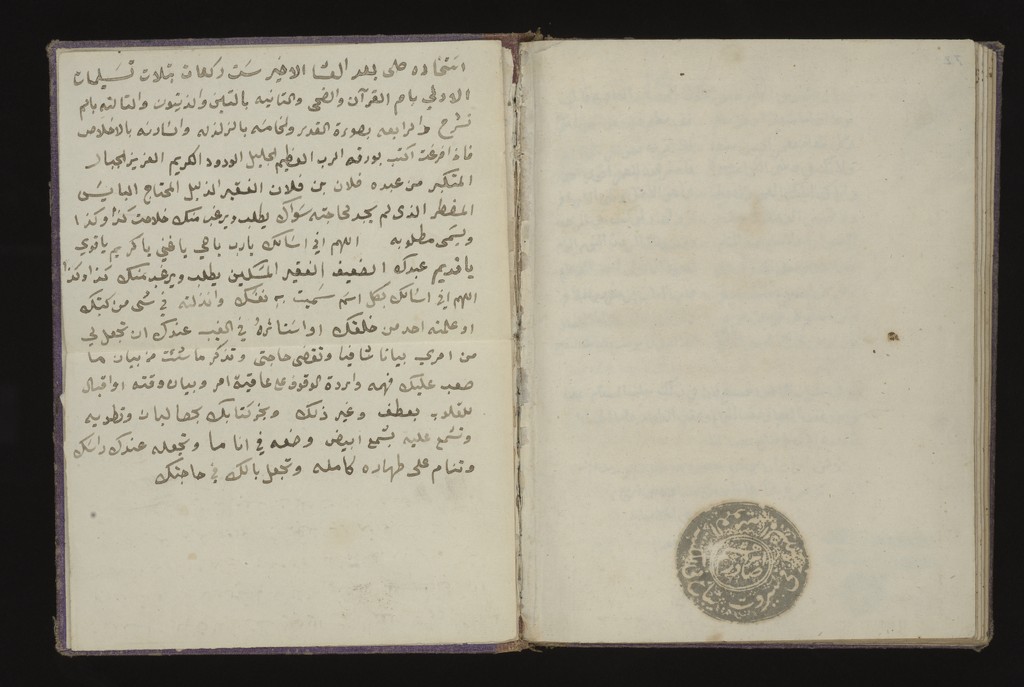 استخاره صلى بعد العشا الاخير ست ركعات بثلات تسليمات
الاولى بام القرآن والضحى والثانيه بالتين والزيتون والثالثه بالم
نشرح والرابعه بصورة القدر والخامسه بالزلزله والسادسه بالاخلاص
فاذا فرغت اكتب بورقه الرب العظيم الجليل الودود الكريم العزيز الجبار
المتكبر من عبده فلان بن فلان الفقير الذليل المحتاج البايس
المضطر الذى لم يجد لحاجته سواك يطلب ويرغب منك خلاصت كذا وكذا
ويسمى مطلوبه اللهم اني اسالك يارب ياحي ياغني ياكريم ياقوي
ياقديم عبدك الضعيف الفقير المسكين يطلب ويرغب منك كذا وكذا
اللهم اني اسالك بكل اسم سميت به نفسك وانزلته في شى من كتبك
او علمته احد من خلقك او استاثرة في الغيب عندك ان تجعل لي
من امري بيانا شافيا وتقضى حاجتى وتذكر ما شئت من بيان ما
صعب عليك فهمه واردة الوقوف على عاقبة امر وبيان وقته او اقبال
القلوب بعطف وغير ذلك وبخر كتابك بحصالبان وتطويه
وتشمع عليه بشمع ابيض وضعه في انا ما وتجعله عند راسك
وتنام على طهاره كامله وتجعل بالك في حاجتك
بيروت